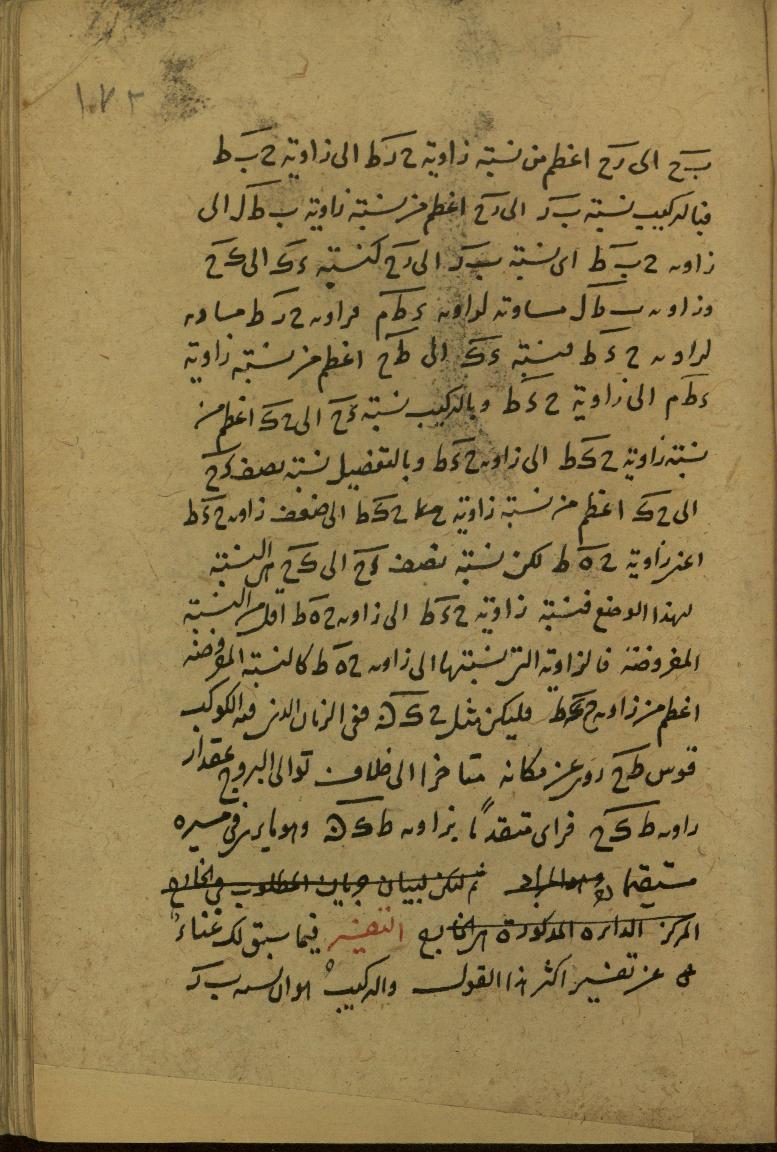 ١٠٧٢
ب ح الى ر ح اعظم من نسبة زاوية ح ر ط الى زاوية ح ب ط
فبالتركيب نسبة ب ر الى ر ح اعظم من نسبة زاوية ب ط ل الى
زاوىه ح ب ط اى نسبة ب ر الى ر ح كنسبة ء ك الى ك ح
وزاوىه ب ط ل مساوىة لزاوىه ء ط م وزاوىه ح ر ط مساوىه
لزاوىه ح ء ط فنسبة ء ك الى ط ح اعظم من نسبة زاوية
ء ط م الى زاوية ح ء ط وبالتركيب نسبة ء ح الى ح ك اعظم من
نسبة زاوية ح ك ط الى زاوىه ح ء ط وبالتفصيل نسبة نصف ء ح
الى ح ك اعظم من نسبة زاوية ح ك ط الى ضعف زاوىه ح ء ط
اعنى زاوية ح ه ط لكن نسبة نصف ء ح الى ك ح هى النسبة
لهذا الوضع فنسبة زاوية ح ك ط الى زاوىه ح ه ط اقل من النسبة
المفروضة فالزاوية التى نسبتها الى زاوىه ح ه ط كالنسبة المفروضة
اعظم من زاوىه ح ك ط فليكن مثل ح ك ن ففى الزمان الذى فيه الكوكب
قوس ط ح روى عن مكانه متاخرا الى خلاف توالى البروج بمقدار
زاوىه ط ك ح فراى متقدمًا بزاوىه ط ك ن وهو ما يرى فى مسيره
مستقيما وهو المراد ثم لنكن لبيان المطلوب فى الخارج
المركز الدائره المذكورة التفسير فيما سبق لك غناء
عن تفسير اكثر هذا القول والتركيب هو ان نسبه ب ر